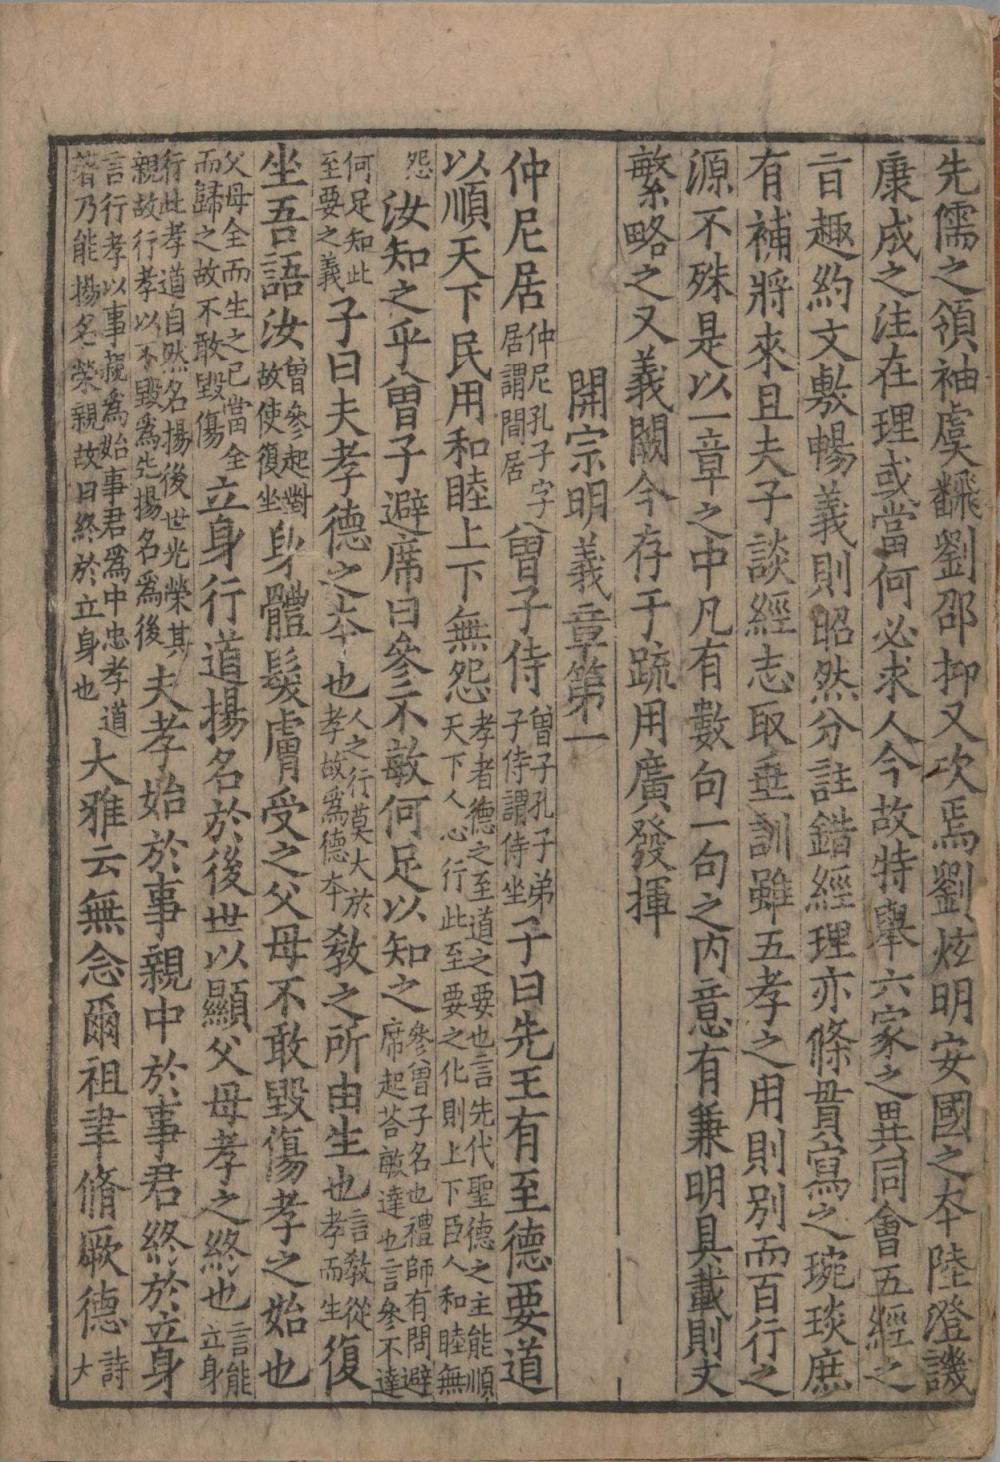 先儒之領袖虞翻劉邵抑又次焉劉炫明安國之本陸澄譏
康成之注在理或當何必求人今故特舉六家之異同會五經之
旨趣約文敷暢義則昭然分註錯經理亦條貫寫之琬琰庶
有補將來且夫子談經志取垂訓雖五孝之用則別而百行之
源不殊是以一章之中凡有數句一句之內意有兼明具載則文
繁略之又義闕今存于疏用廣發揮
開宗明義章第一
仲尼居仲尼孔子字居謂間居曾子侍曾子孔子弟子侍謂侍坐子曰先王有至德要道
以順天下民用和睦上下無怨孝者德之至道之要也言先代聖德之主能順天下人心行此至要之化則上下臣人和睦無
怨汝知之乎曾子避席曰參不敏何足以知之參曾子名也禮師有問避席起荅敏達也言參不達
何足知此至要之義子曰夫孝德之本也人之行莫大於孝故為德本教之所由生也言教從孝而生復
坐吾語汝曾參起對故使復坐身體髮膚受之父母不敢毀傷孝之始也
父母全而生之已當全而歸之故不敢毀傷立身行道揚名於後世以顯父母孝之終也言能立身
行此孝道自然名揚後世光榮其親故行孝以不毀為先揚名為後夫孝始於事親中於事君終於立身
言行孝以事親為始事君為中忠孝道著乃能揚名榮親故曰終於立身也大雅云無念爾祖聿脩厥德詩大